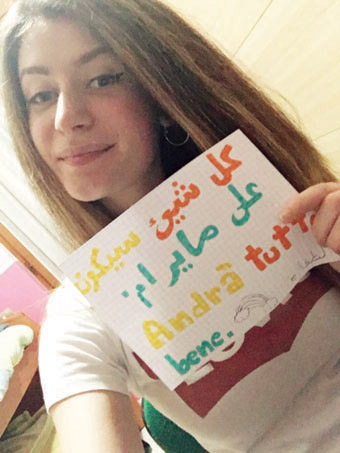 كل شيئ سيكون
على مايرام.
Andrà tutto
bene.